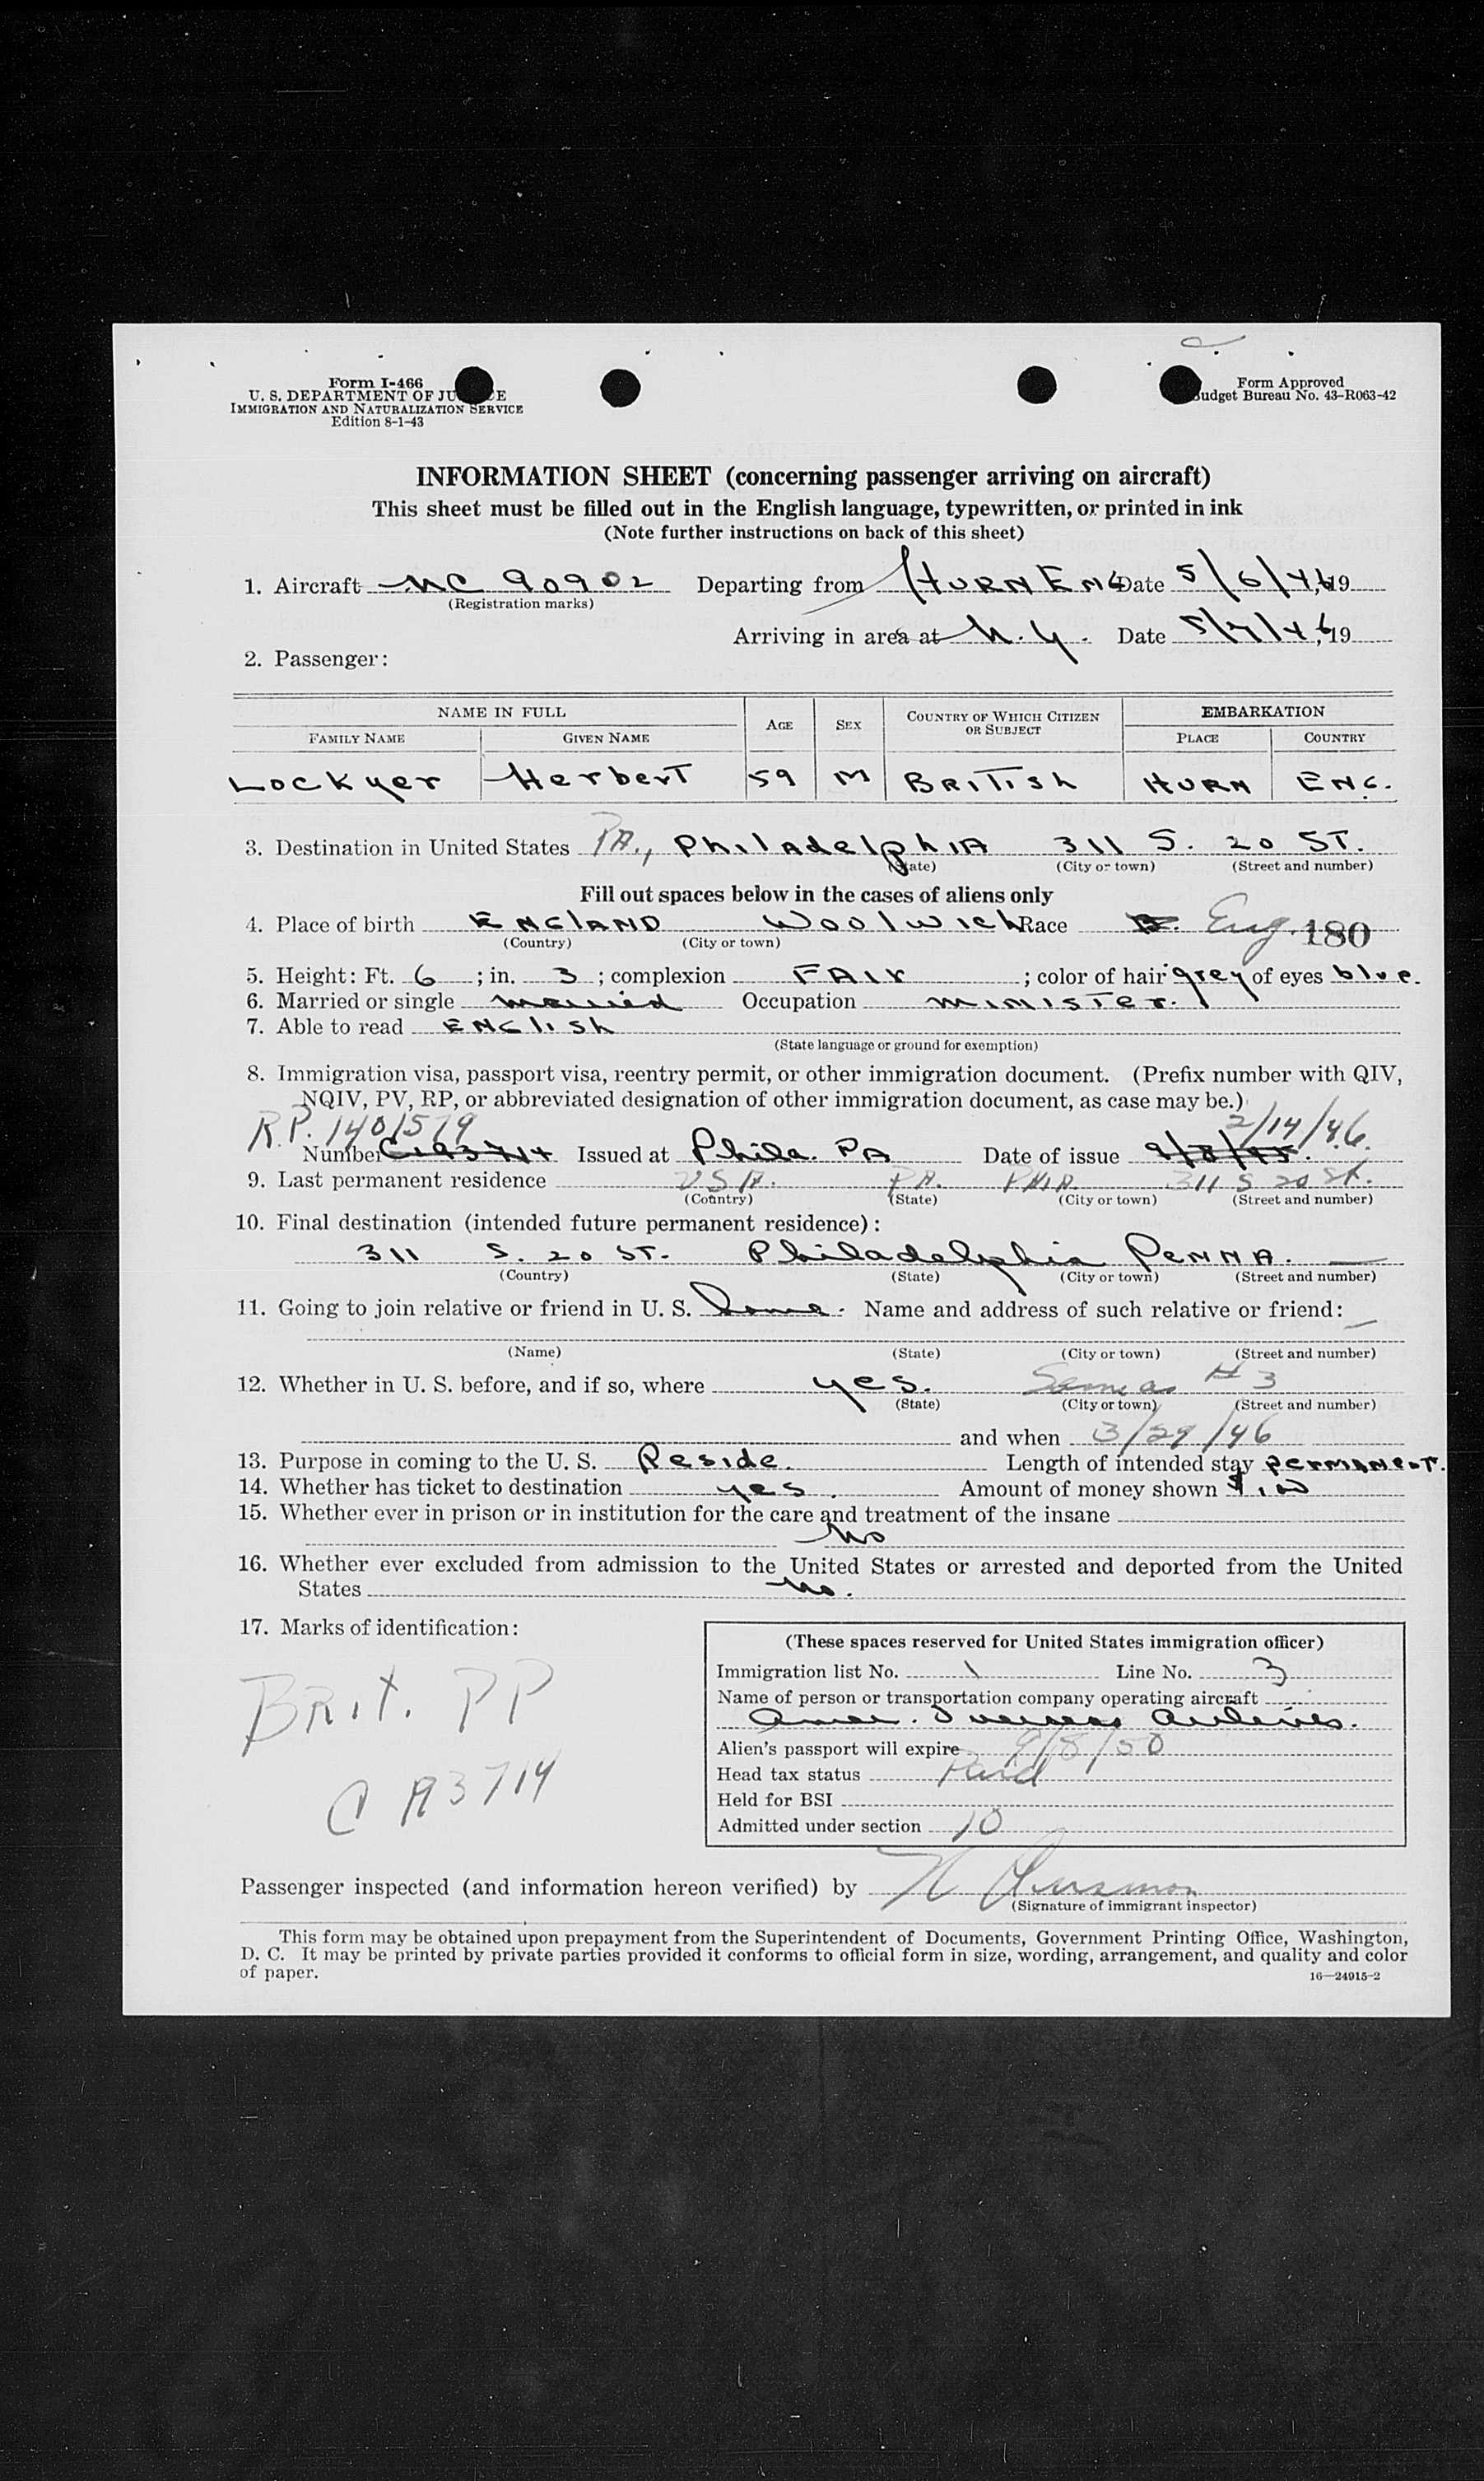 Form I-466
U. S. DEPARTMENT OF JU CE
IMMIGRATION AND NATURALIZATION SERVICE
Edition 8-1-43
Form Approved
Budget Bureau No. 43-R063-42
INFORMATION SHEET (concerning passenger arriving on aircraft)
This sheet must be filled out in the English language, typewritten, or printed in ink
(Note further instructions on back of this sheet)
1. Aircraft NC 90902 Departing from HURN ENG Date 5/6/46, 19
(Registration marks)
Arriving in area at N.Y. Date 5/7/46, 19
2. Passenger:
NAME IN FULL AGE SEX COUNTRY OF WHICH CITIZEN OR SUBJECT EMBARKATION
FAMILY NAME GIVEN NAME PLACE COUNTRY
Lockyer Herbert 59 M BRITISH HURN ENG.
3. Destination in United States PA., PhilAdelphIA 311 S. 20 ST.
(State) (City or town) (Street and number)
Fill out spaces below in the cases of aliens only
4. Place of birth ENGlAND Woolwich Race Eng. 180
(Country) (City or town)
5. Height: Ft. 6 ; in. 3 ; complexion FAIr ; color of hair grey of eyes blue.
6. Married or single married Occupation MINISTEr.
7. Able to read ENGlish
(State language or ground for exemption)
8. Immigration visa, passport visa, reentry permit, or other immigration document. (Prefix number with QIV,
NQIV, PV, RP, or abbreviated designation of other immigration document, as case may be.)
R.P. 1401579 2/14/46.
Number Issued at Phila. PA Date of issue 9/8/45.
9. Last permanent residence USA. PA. PHIA. 311 S 20 St.
(Country) (State) (City or town) (Street and number)
10. Final destination (intended future permanent residence):
311 S. 20 ST. Philadelphia PENNA.
(Country) (State) (City or town) (Street and number)
11. Going to join relative or friend in U. S. Home. Name and address of such relative or friend:
(Name) (State) (City or town) (Street and number)
12. Whether in U. S. before, and if so, where yes. Same as # 3
(State) (City or town) (Street and number)
and when 3/29/46
13. Purpose in coming to the U. S. Reside. Length of intended stay PERMANENT.
14. Whether has ticket to destination yes. Amount of money shown
15. Whether ever in prison or in institution for the care and treatment of the insane
No
16. Whether ever excluded from admission to the United States or arrested and deported from the United
States No.
17. Marks of identification:
BRIt. PP
C A3714
(These spaces reserved for United States immigration officer)
Immigration list No. 1 Line No. 3
Name of person or transportation company operating aircraft
Amer. Overseas Airlines.
Alien's passport will expire 9/8/50
Head tax status Paid
Held for BSI
Admitted under section 10
Passenger inspected (and information hereon verified) by
(Signature of immigrant inspector)
This form may be obtained upon prepayment from the Superintendent of Documents, Government Printing Office, Washington,
D. C. It may be printed by private parties provided it conforms to official form in size, wording, arrangement, and quality and color
of paper.
16—24915-2